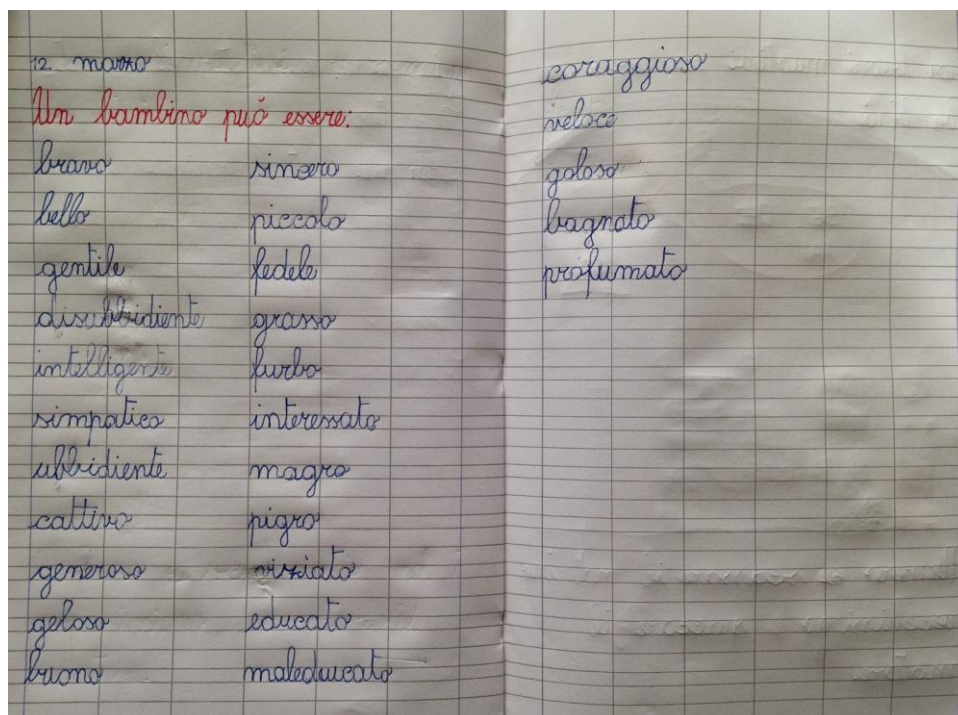 12 marzo
Un bambino può essere:
bravo
bello
gentile
disubbidiente
intelligente
simpatico
ubbidiente
cattivo
generoso
geloso
buono
sincero
piccolo
fedele
grasso
furbo
interessato
magro
pigro
viziato
educato
maleducato
coraggioso
veloce
goloso
bagnato
profumato